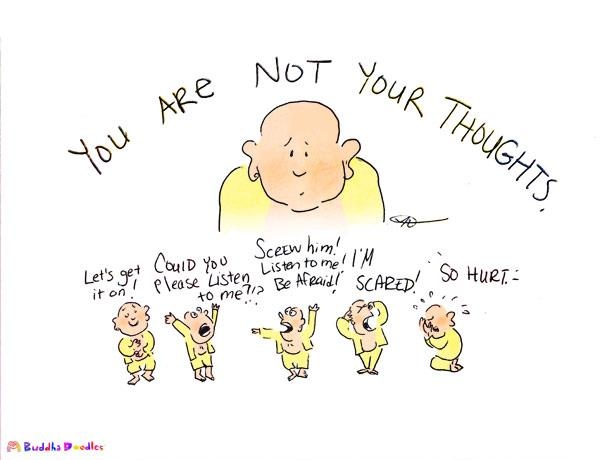 YOU ARE NOT YOUR THOUGHTS.
Let's get
it on!
COULD YOU
Please Listen
to me?!?
SCREW him!
Listen to me!
Be AfRaid!
I'M
SCARED!
SO HURT.
Buddha Doodles